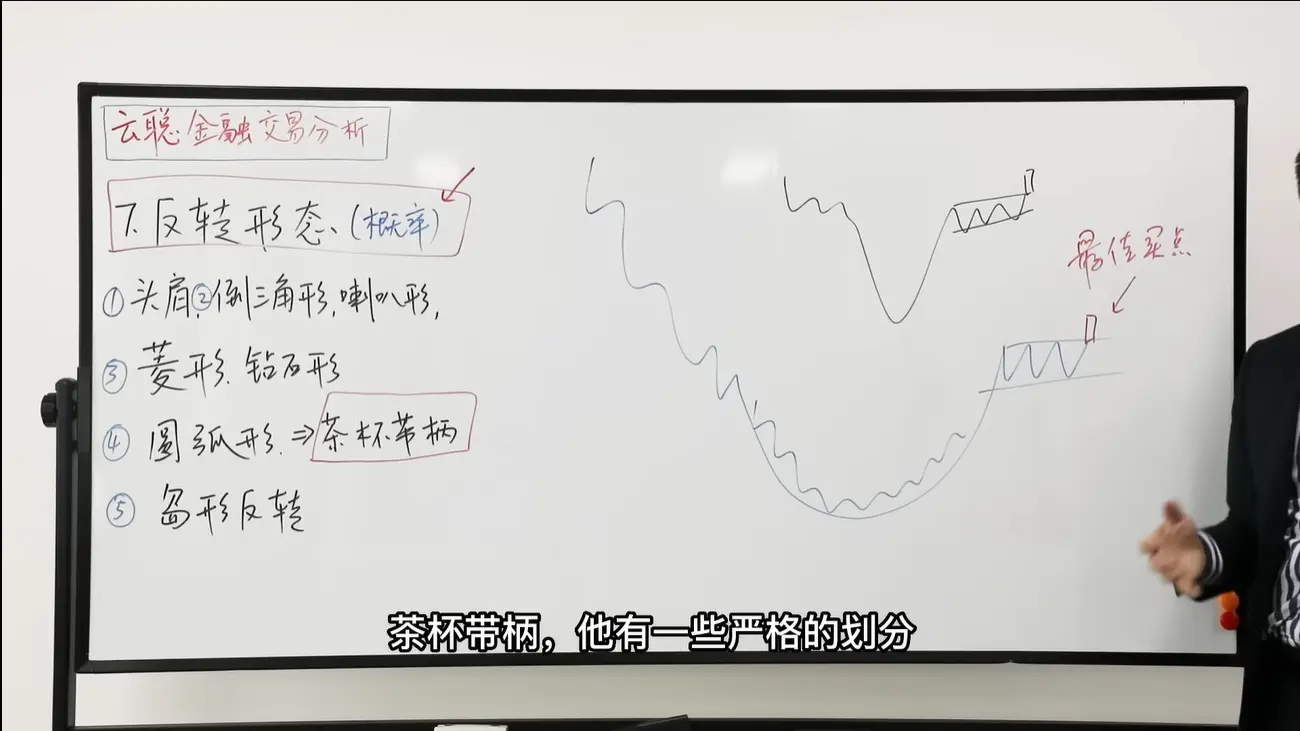 云聪金融交易分析
7.反转形态、(概率)
①头肩②倒三角形,喇叭形,
③菱形、钻石形
④圆弧形⇒茶杯带柄
⑤岛形反转
最佳买点
茶杯带柄，他有一些严格的划分